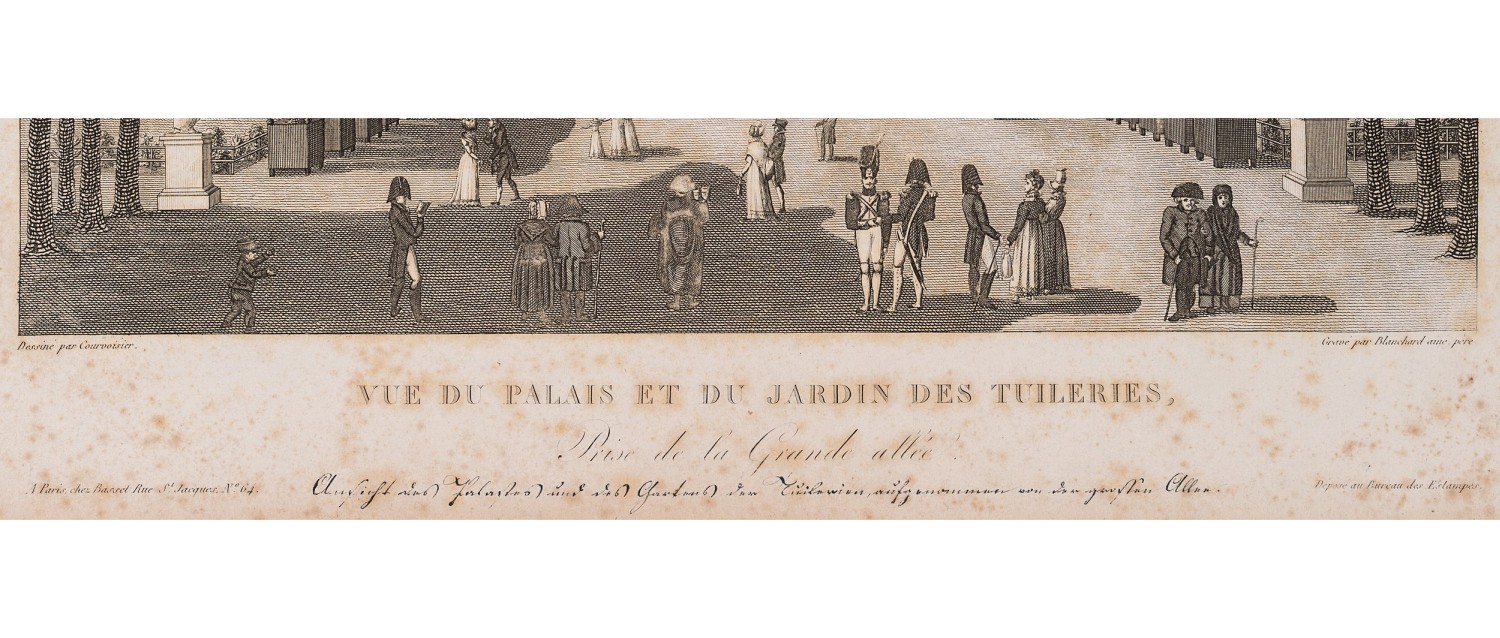 Dessiné par Courvoisier.
Gravé par Blanchard ainé, père
VUE DU PALAIS ET DU JARDIN DES TUILERIES,
Prise de la Grande allée.
A Paris, chez Basset Rue St. Jacques, No 64.
Ansicht des Palastes und des Gartens der Tuilerien, aufgenommen von der grossen Allee.
Déposé au Bureau des Estampes.